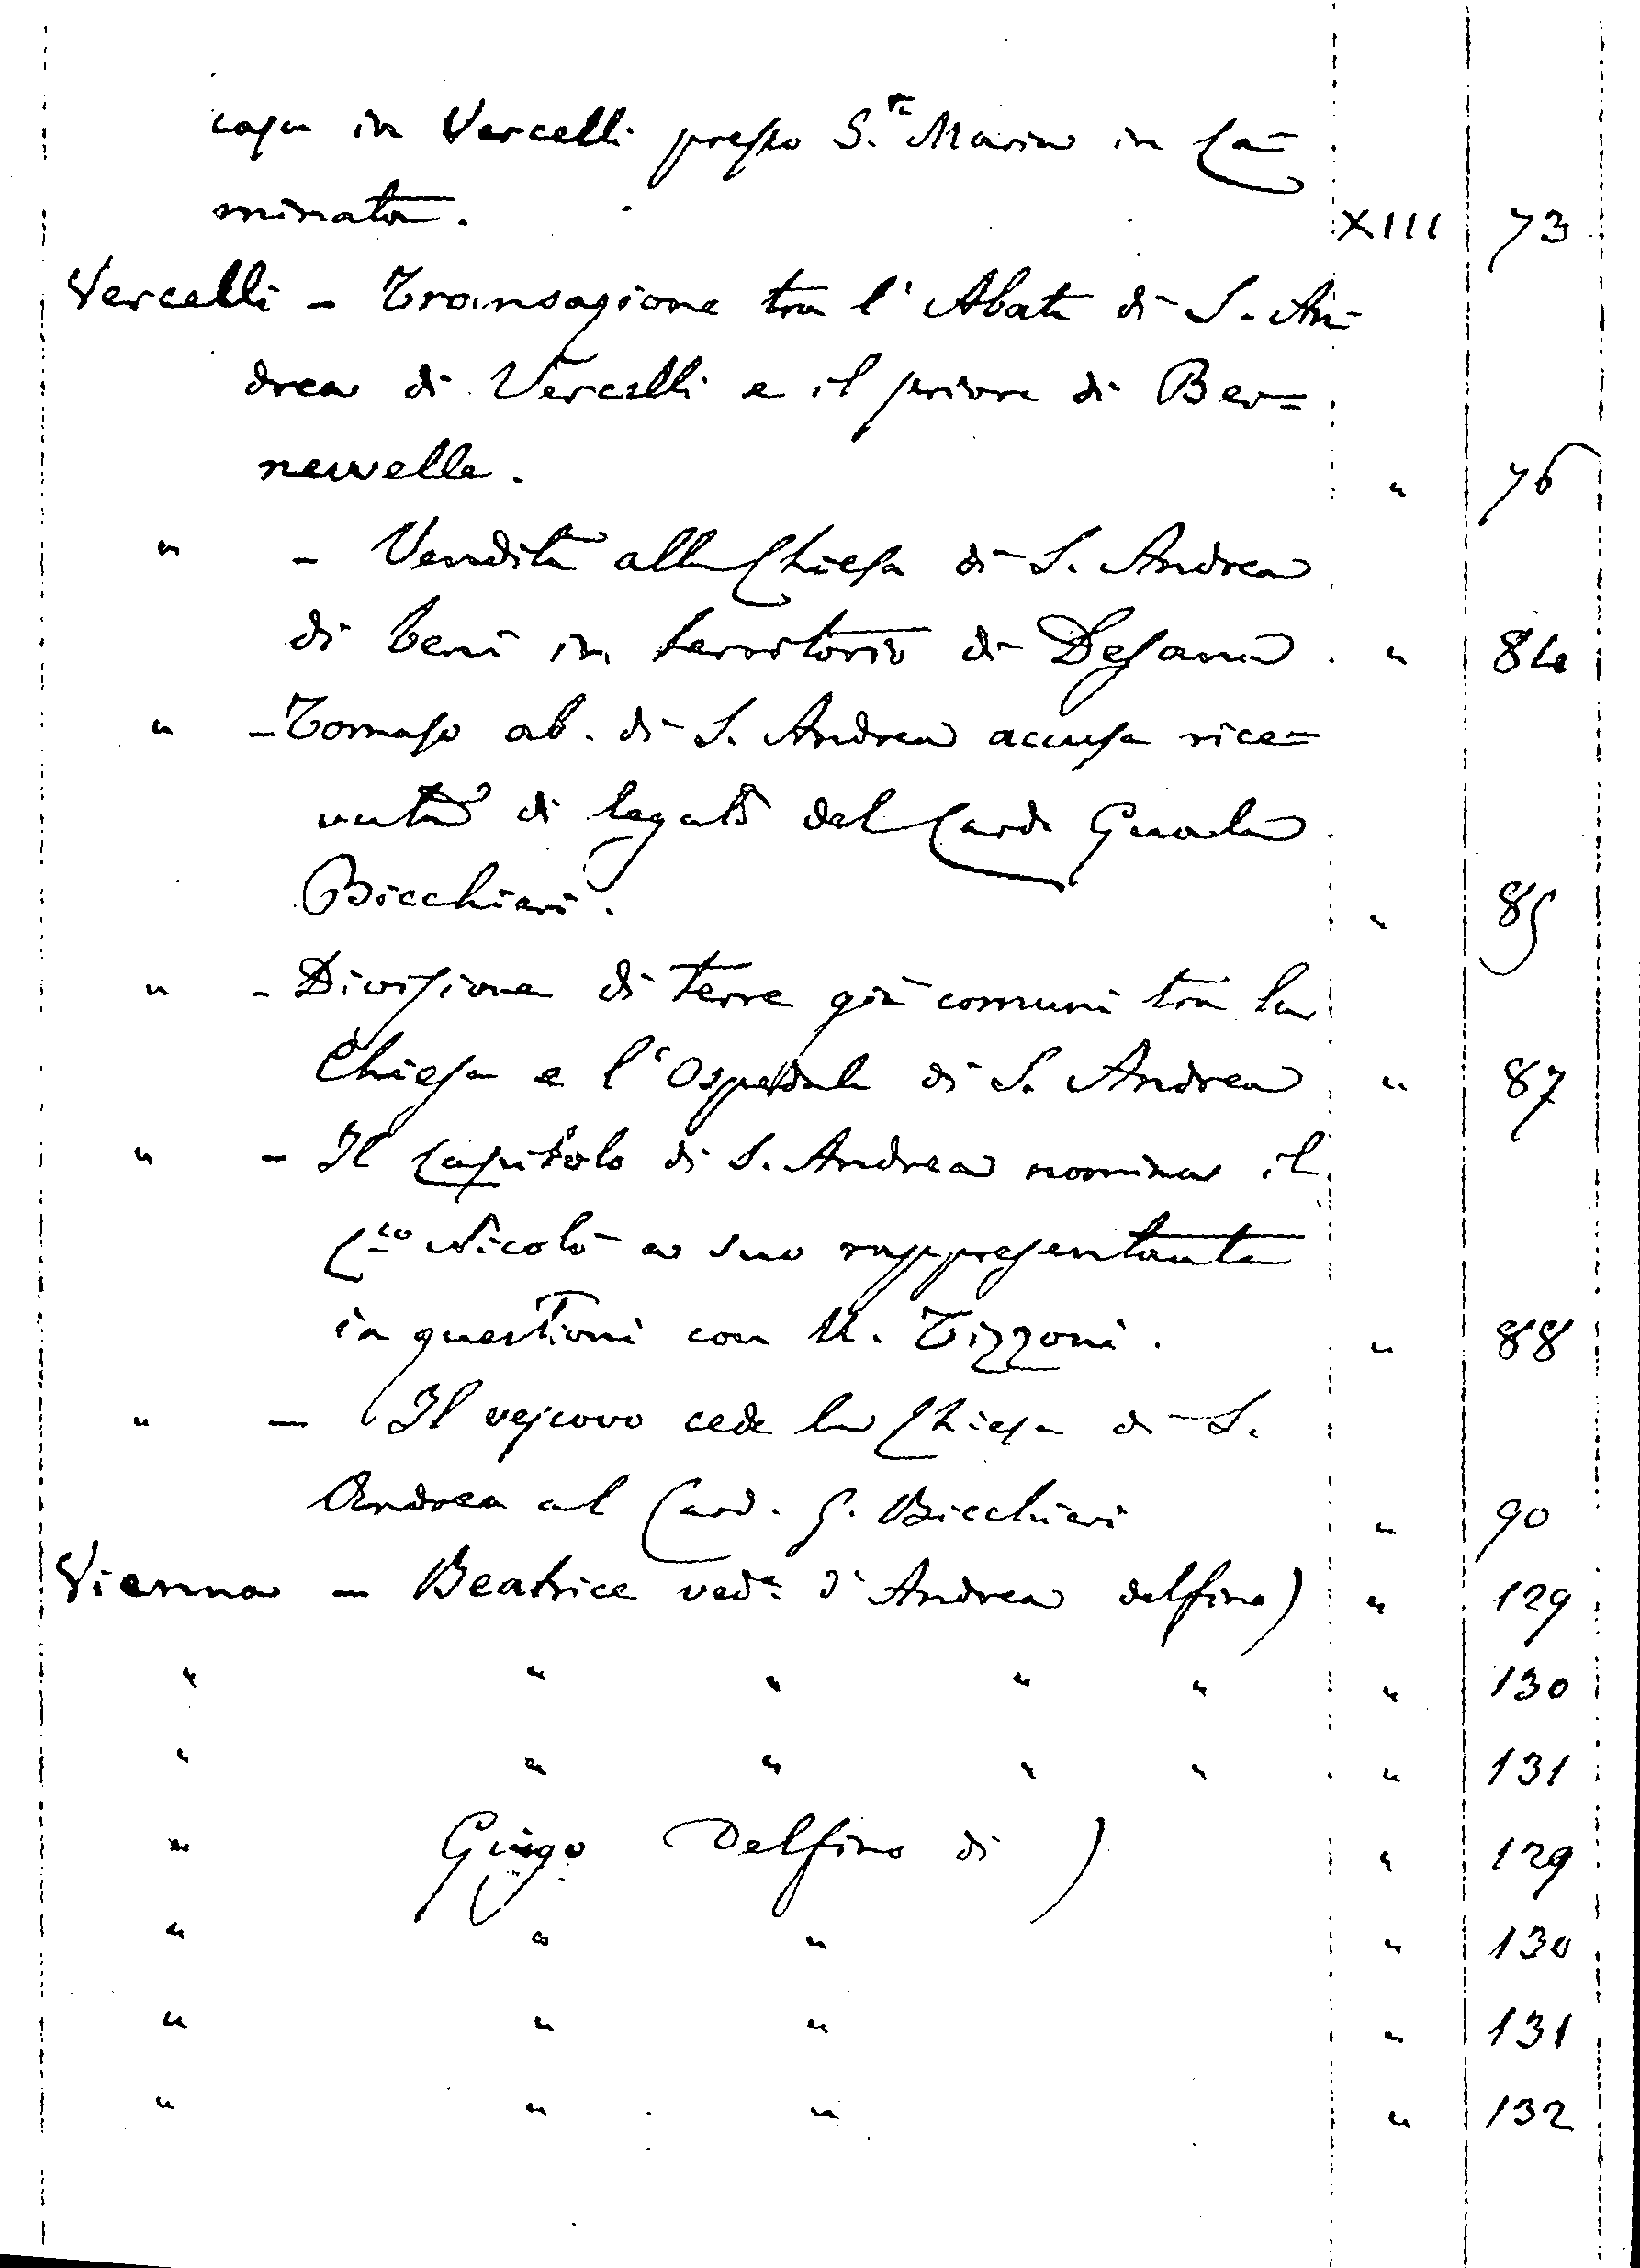 casa in Vercelli presso S.ta Maria in Ca=
minata. XIII 73
Vercelli - Transazione tra l'Abate di S. An=
drea di Vercelli e il priore di Ber=
newelle. " 76
" - Vendita alla Chiesa di S. Andrea
di beni in territorio di Desana. " 84
" - Tomaso ab. di S. Andrea accusa rice=
vuta di legati del Card. Guala
Bicchieri. " 85
" - Divisione di terre già comuni tra la
Chiesa e l'Ospedale di S. Andrea " 87
" - Il Capitolo di S. Andrea nomina il
C.co Nicolò a suo rappresentante
in questioni con U. Tizzoni. " 88
" - Il vescovo cede la Chiesa di S.
Andrea al Card. G. Bicchieri " 90
Vienna - Beatrice ved.a d'Andrea delfino) " 129
" " " " " " 130
" " " " " " 131
" Guigo Delfino di ) " 129
" " " " 130
" " " " 131
" " " " 132